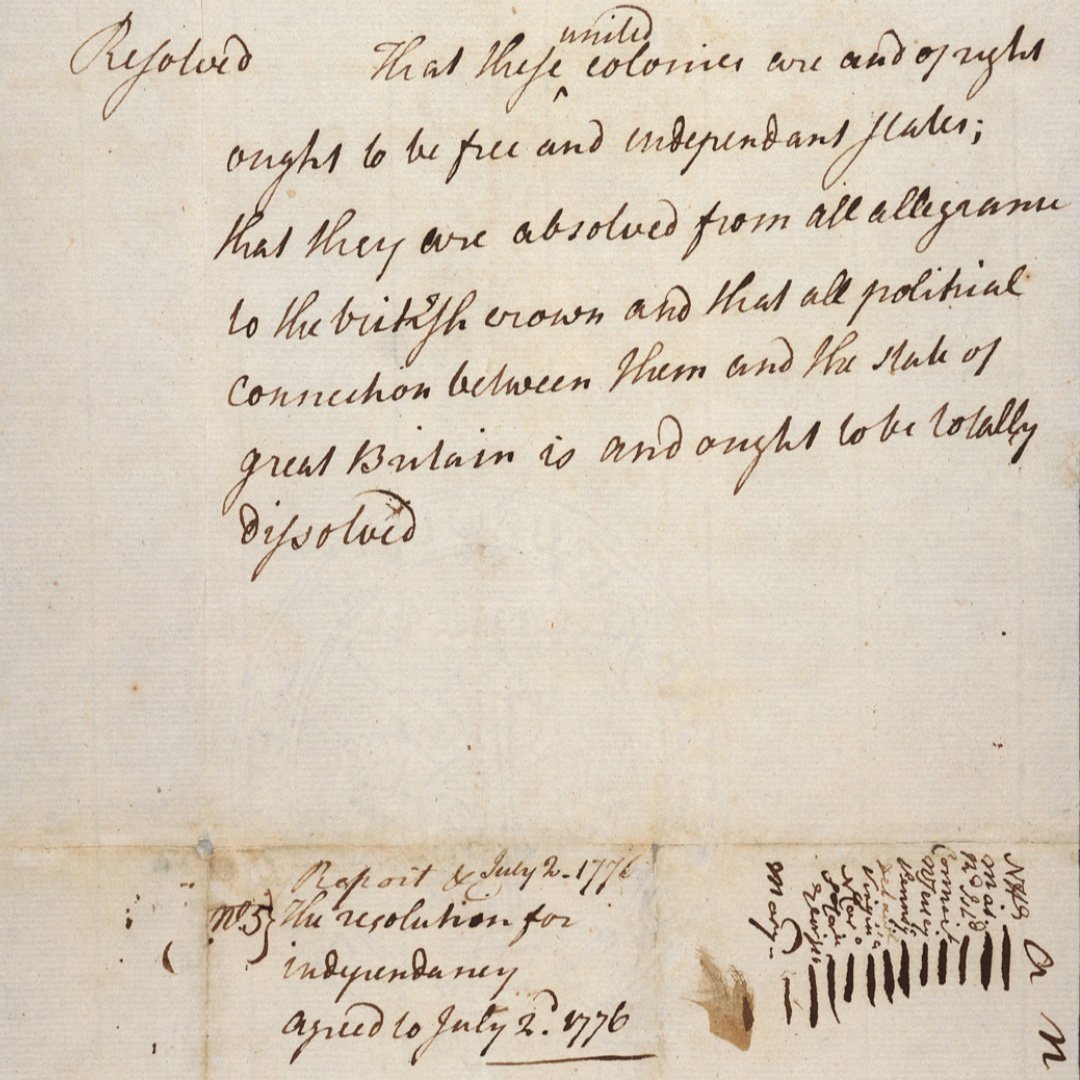 Resolved That these united colonies are and of right
ought to be free and independant states;
that they are absolved from all allegiance
to the british crown and that all political
connection between them and the state of
great Britain is and ought to be totally
dissolved
Report &c July 2. 1776
No. 5} the resolution for
independancy
agreed to July 2d. 1776